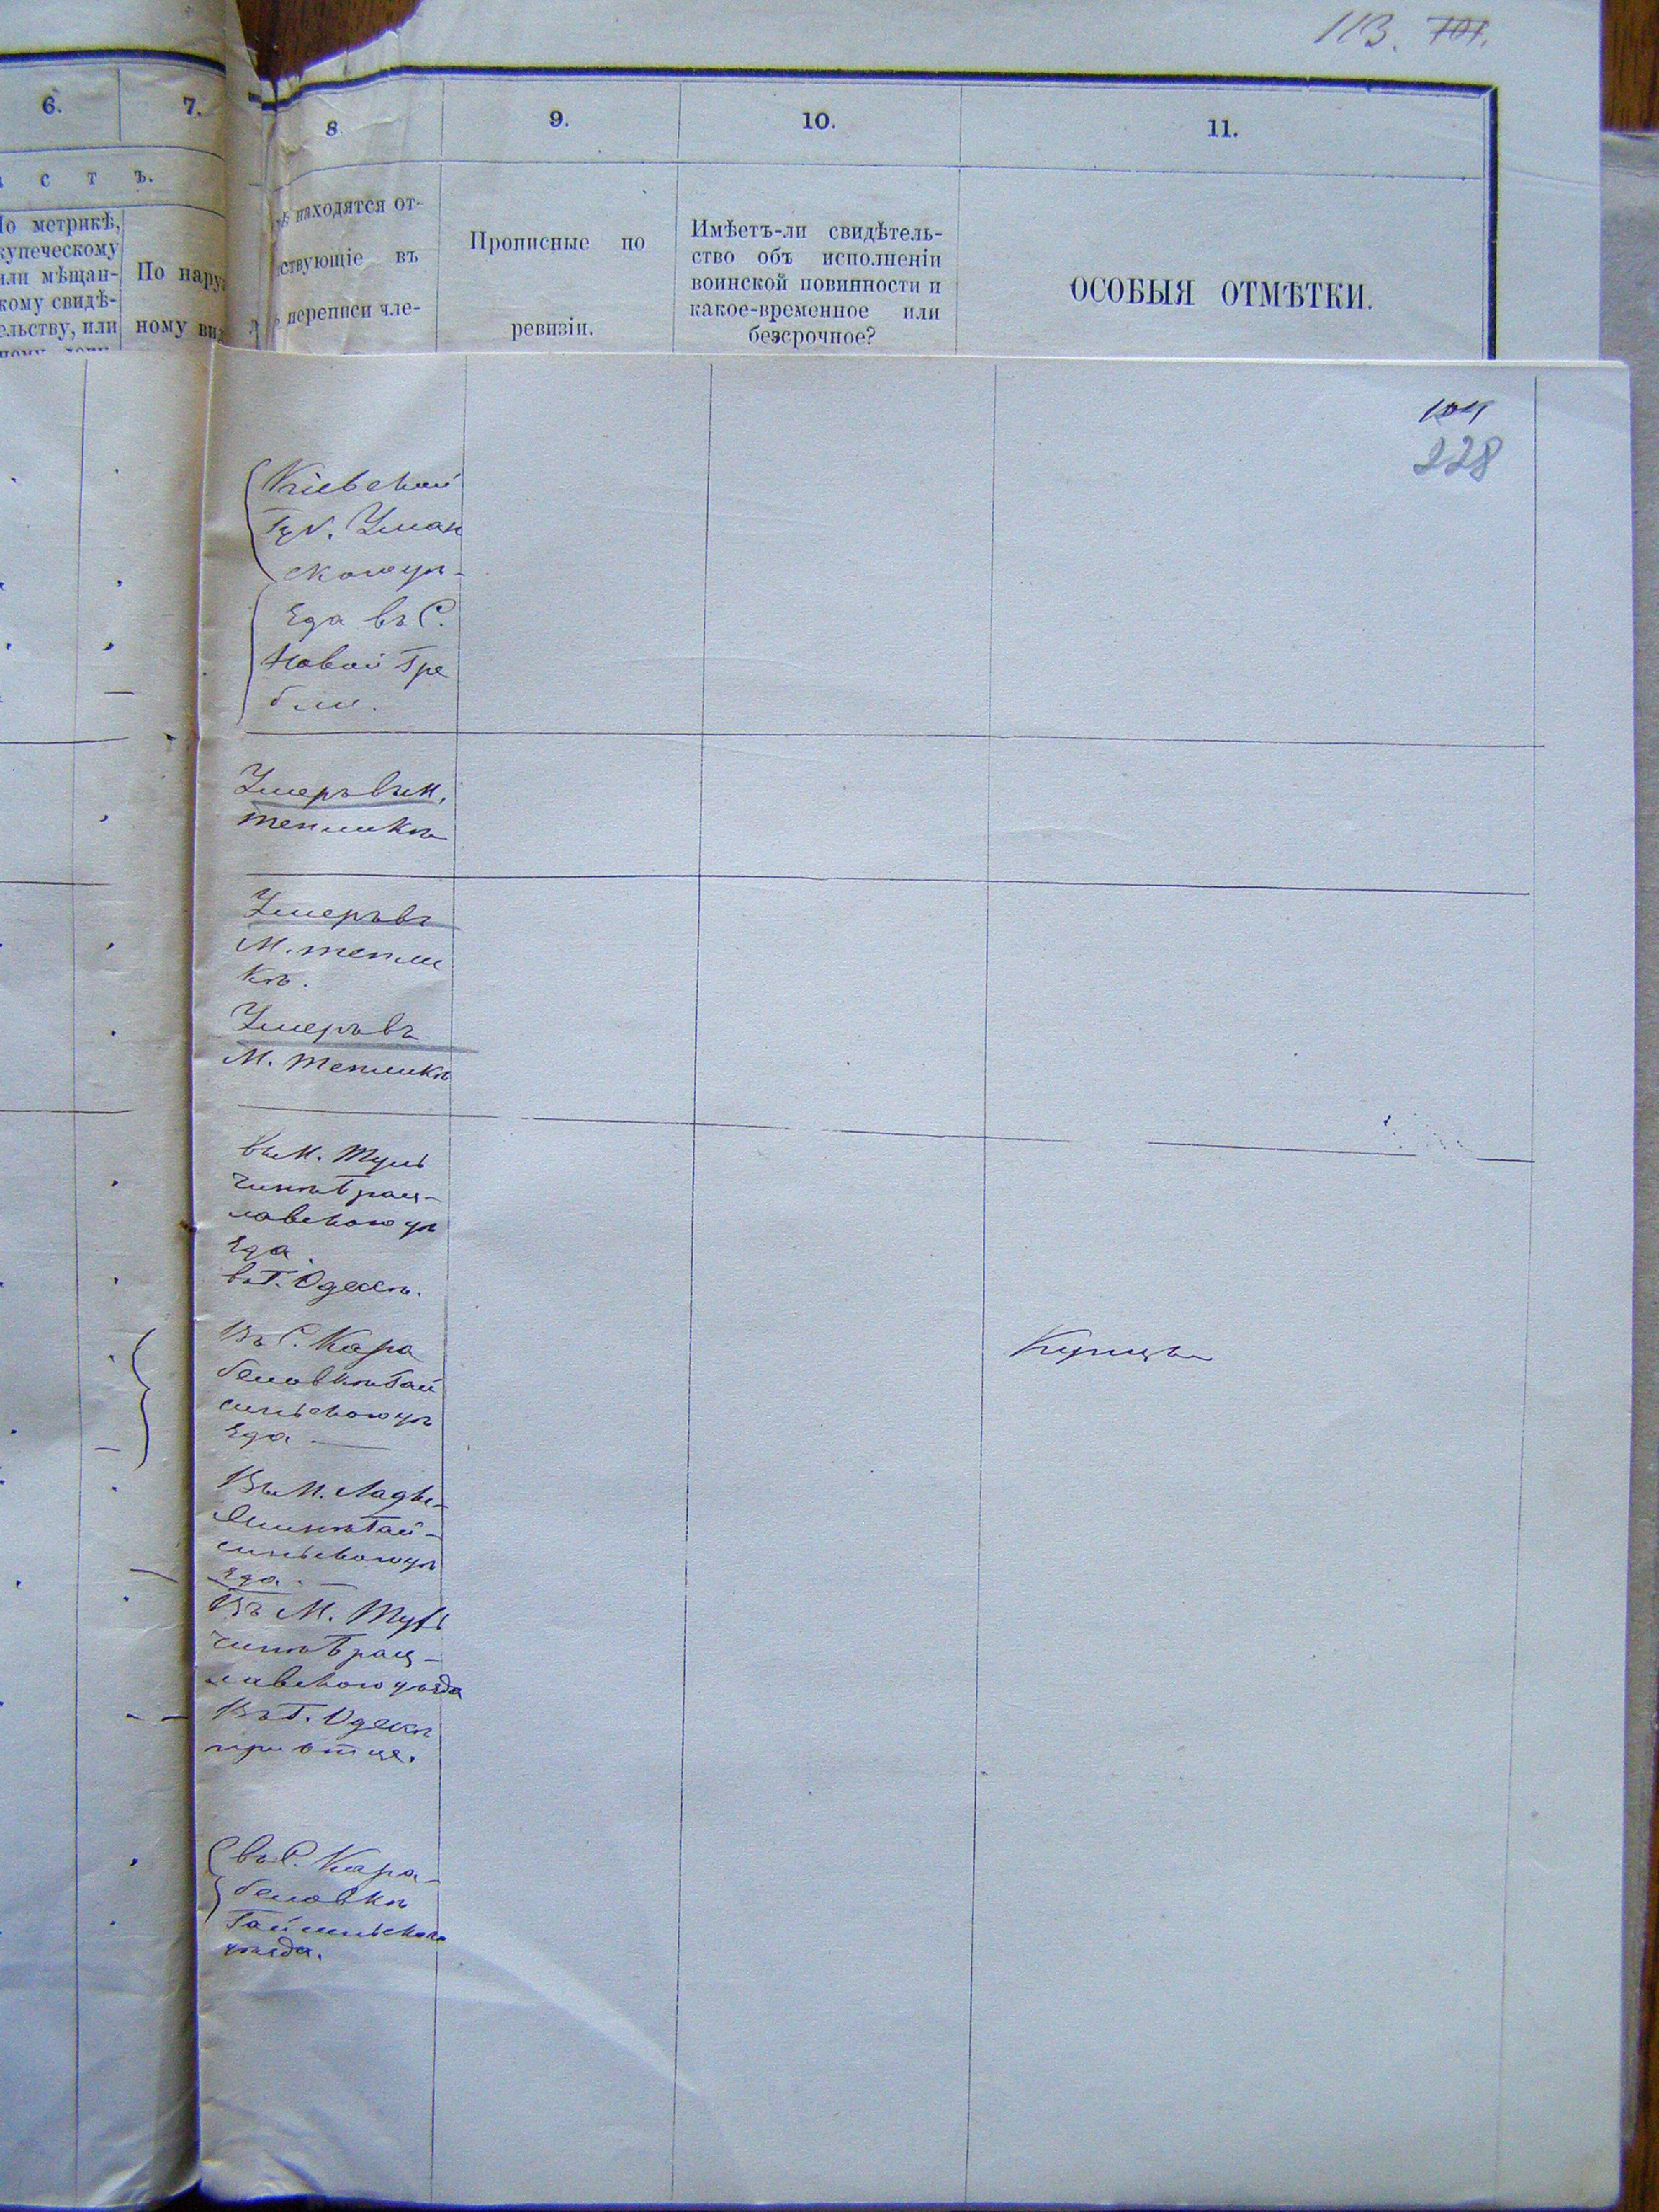 113. 101.
6. 7. 8 9. 10. 11.
с т ъ.
По метрикѣ,
купеческому
или мѣщан-
скому свидѣ-
тельству, или
По нару
ному ви
находятся от-
ствующіе въ
переписи чле-
Прописные по
ревизіи.
Имѣетъ-ли свидѣтель-
ство объ исполненіи
воинской повинности и
какое-временное или
безсрочное?
ОСОБЫЯ ОТМѢТКИ.
104
228
Кіевской
Губ. Уман
скаго уѣ-
зда въ С.
Новой Гре
бли.
Умеръ въ М.
Тепликѣ
Умеръ въ
М. Тепли
кѣ.
Умеръ въ
М. Тепликѣ
въ М. Туль
чинѣ Брац-
лавскаго уѣ
зда.
въ Г. Одессѣ.
Въ С. Кара
беловкѣ Гай
синьскаго уѣ
зда
Купецъ
Въ М. Лады-
жинѣ Гай-
синьскаго уѣ
зда.
Въ М. Туль
чинѣ Брац-
лавскаго уѣзда
Въ Г. Одесѣ
при отце.
въ С. Кара-
беловкѣ
Гайсиньскаго
уѣзда.